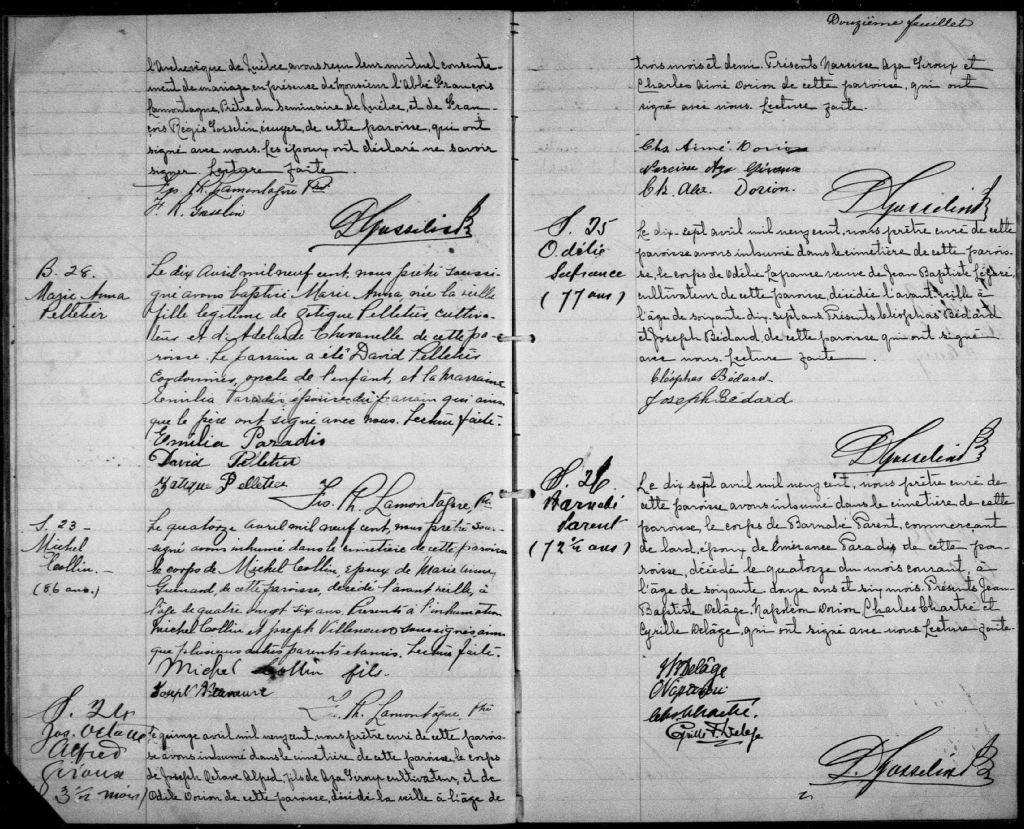 l'Archevêque de Québec avons reçu leur mutuel consente-
ment de mariage en présence de Monsieur l'Abbé François
Lamontagne, Prêtre du Seminaire de Québec, et de Fran-
çois Régis Gosselin écuyer, de cette paroisse, qui ont
signé avec nous. Les époux ont déclaré ne savoir
signer. Lecture faite.
Fçs. Th. Lamontagne Ptre
F. R. Gosselin
D Gosselin Ptr
B. 28.
Marie Anna
Pelletier
Le dix Avril mil neuf cent, nous prêtre soussi-
gné avons baptisé Marie Anna née la veille
fille legitime de Zotique Pelletier, cultiva-
teur et d'Adelaide Chevanelle de cette pa-
roisse. Le parrain a été David Pelletier
Cordonnier, oncle de l'enfant, et la marraine
Emilia Paradis épouse du parrain qui ainsi
que le père ont signé avec nous. Lecture faite.
Emélia Paradis
David Pelletier
Zotique Pelletier
Frs. Th. Lamontagne, Ptre
S. 23 -
Michel
Collin. -
(86 ans.)
Le quatorze avril mil neuf cent, nous prêtre sous-
signé avons inhumé dans le cimetière de cette paroisse
le corps de Michel Collin, époux de Marie
Guinard, de cette paroisse, décédé l'avant veille, à
l'age de quatre vingt six ans. Présents à l'inhumation
Michel Collin et Joseph Villeneuve soussignés ainsi
que plusieurs autres parents et amis. Lecture faite.
Michel Collin fils.
Joseph Villeneuve
Fr. Th. Lamontagne, Ptre
S. 24
Jos. Octave
Alfred
Giroux
3 1/2 mois)
Le quinze avril mil neuf cent, nous prêtre curé de cette parois-
se avons inhumé dans le cimetière de cette paroisse, le corps
de Joseph Octave Alfred, fils de Aza Giroux cultivateur, et de
Odile Dorion de cette paroisse, décédé la veille à l'âge de
Douzième feuillet
trois mois et demi. Présents Narcisse Aza Giroux et
Charles Aimé Dorion de cette paroisse, qui ont
signé avec nous. Lecture faite.
Chs Aimé Dorion
Narcisse Aza Giroux
Ch. Alex. Dorion.
D Gosselin Ptr
S. 25
Odélie
Lafrance
(77 ans)
Le dix-sept avril mil neuf cent, nous prêtre curé de cette
paroisse avons inhumé dans le cimetière de cette parois-
se, le corps de Odilie Lafrance veuve de Jean Baptiste Légaré,
cultivateur de cette paroisse, décédée l'avant-veille à
l'âge de soixante dix-sept ans Présents Cléophas Bédard
et Joseph Bédard, de cette paroisse qui ont signé
avec nous. Lecture faite
Cléophas Bédard
Joseph Bédard
D Gosselin Ptr
S. 26
Barnabé
Parent
(72 1/2 ans)
Le dix sept avril mil neuf cent, nous prêtre curé de
cette paroisse avons inhumé dans le cimetière de cette
paroisse, le corps de Barnabé Parent, commerçant
de lard, époux de Emérance Paradis de cette pa-
roisse, décédé le quatorze du mois courant, à
l'âge de soixante douze ans et six mois. Présents Jean
Baptiste Delâge, Napoléon Dorion Charles Chartré et
Cyrille Delâge, qui ont signé avec nous Lecture faite.
JB Delâge
Chs Chartré.
Cyrille F. Delage
D. Gosselin Ptr